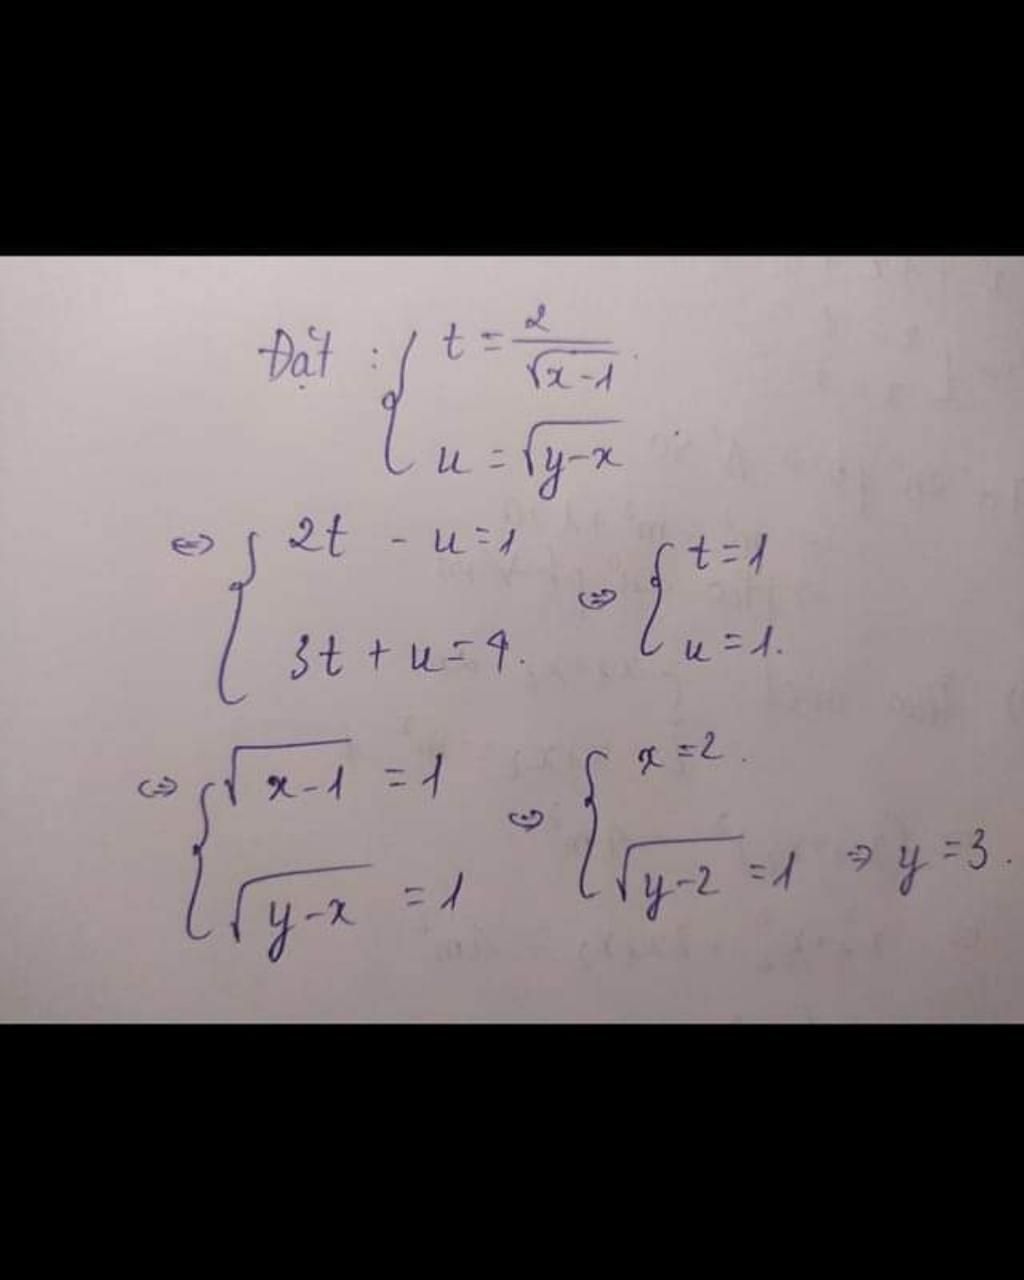 Đặt : { t = 2/√(x-1)
u = √(y-x)
⇔ { 2t - u = 1
3t + u = 4.
⇔ { t = 1
u = 1.
⇔ { √(x-1) = 1
√(y-x) = 1
⇔ { x = 2.
√(y-2) = 1 ⇒ y = 3.